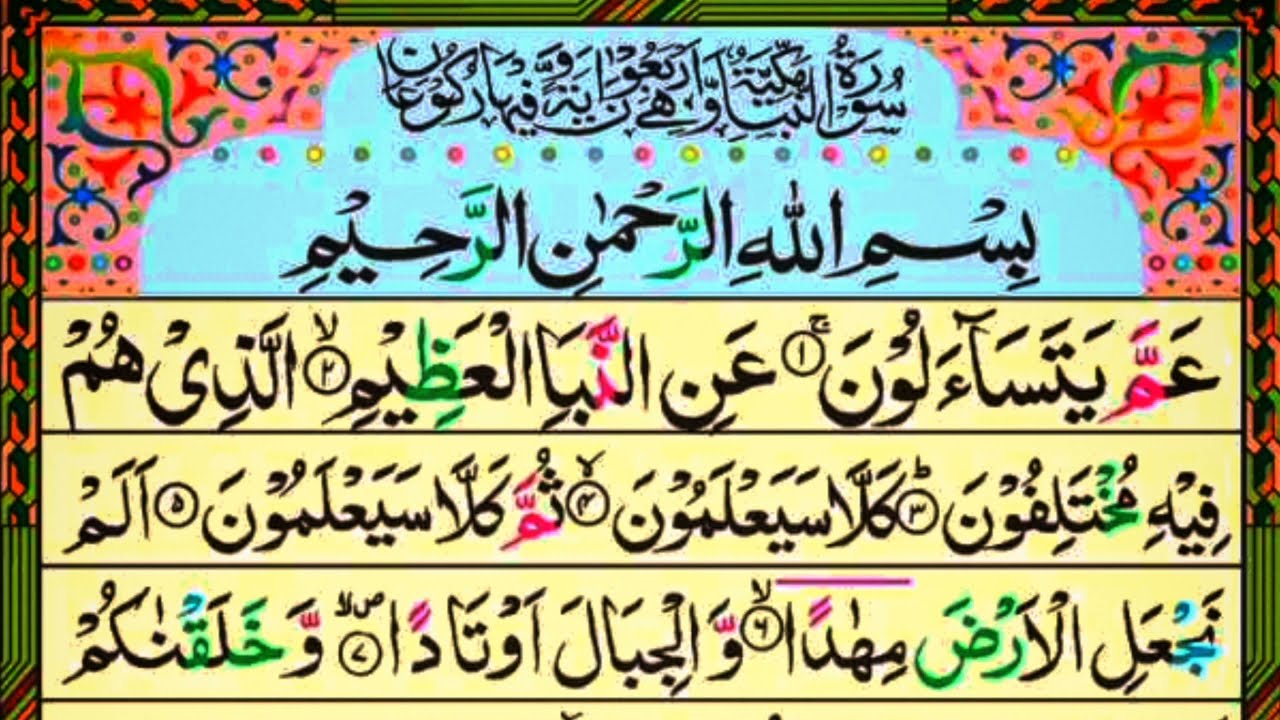 سُوْرَةُ النَّبَاِ مَكِّيَّةٌ وَّ هِيَ اَرْبَعُوْنَ اٰيَةً وَّ فِيْهَا رُكُوْعَانِ
بِسْمِ اللّٰهِ الرَّحْمٰنِ الرَّحِيْمِ
عَمَّ يَتَسَآءَلُوْنَ ۚ ﴿۱﴾ عَنِ النَّبَاِ الْعَظِيْمِ ۙ ﴿۲﴾ الَّذِيْ هُمْ
فِيْهِ مُخْتَلِفُوْنَ ؕ ﴿۳﴾ كَلَّا سَيَعْلَمُوْنَ ۙ ﴿۴﴾ ثُمَّ كَلَّا سَيَعْلَمُوْنَ ﴿۵﴾ اَلَمْ
نَجْعَلِ الْاَرْضَ مِهٰدًا ۙ ﴿۶﴾ وَّ الْجِبَالَ اَوْتَادًا ۪ۙ ﴿۷﴾ وَّ خَلَقْنٰكُمْ